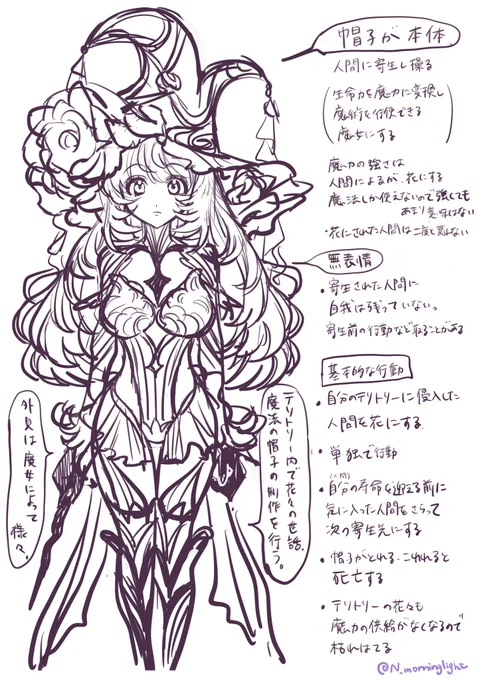 帽子が本体
人間に寄生し操る
(生命力を魔力に変換し
魔術を行使できる
魔女にする)
魔力の強さは
人間によるが、花にする
魔法しか使えないので強くても
あまり意味はない
・花にされた人間は二度と戻らない
無表情
・寄生された人間に
自我は残っていない。
寄生前の行動など取ることがある
基本的な行動
・自分のテリトリーに侵入した
人間を花にする
・単独で行動
・自分(人間)の寿命を迎える前に
気に入った人間をさらって
次の寄生先にする
・帽子がとれる、こわれると
死亡する
・テリトリーの花々も
魔力の供給がなくなるので
枯れはてる
テリトリー内で花々の世話、
魔法の帽子の制作を行う。
外見は魔女によって
様々。
@N_morninglight